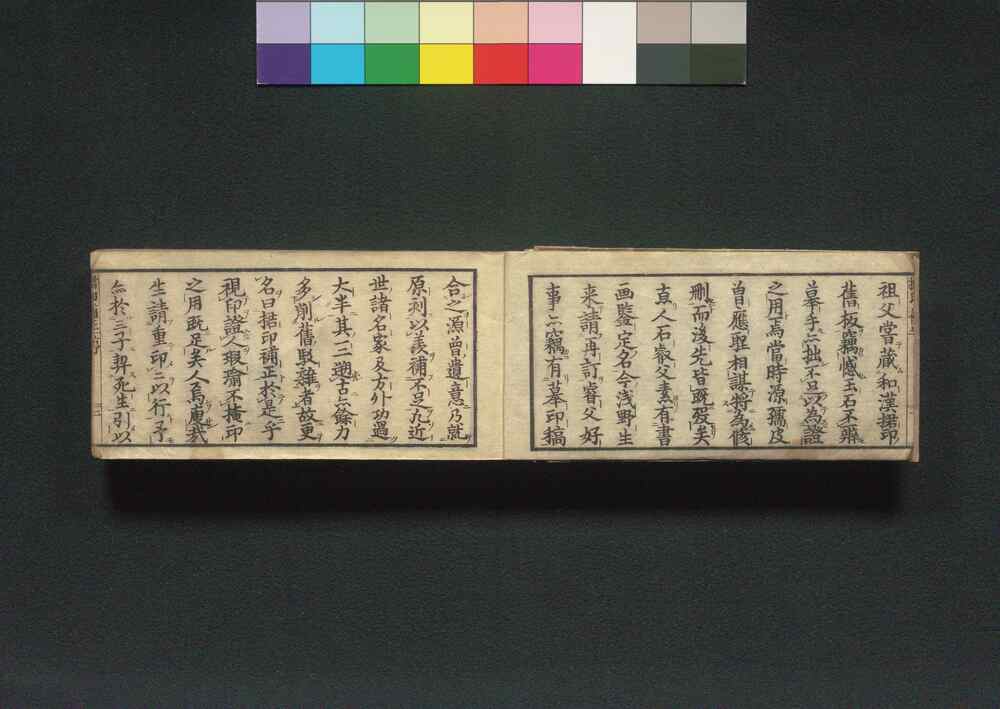 祖父嘗蔵和漢押印
舊板竊憾玉石不辨
摹手亦拙不足以為證
之用焉當時源孺皮
曽應聖相謀将為修
刪而後先皆既歿矣
真人石嶽父素有書
画鑒定名今浅野生
来請再訂睿父好
事亦竊有摹印稿
合之源曽遺意乃就
原刻以羨補不足尤近
世諸名家及方外功過
大半其三遡古亦餘力
多削舊駁雜者故更
名曰押印補正於是乎
視印證人瑕瑜不掩印
之用既足矣人焉廋哉
生請重印亦以行予
亦於三子契死生引以